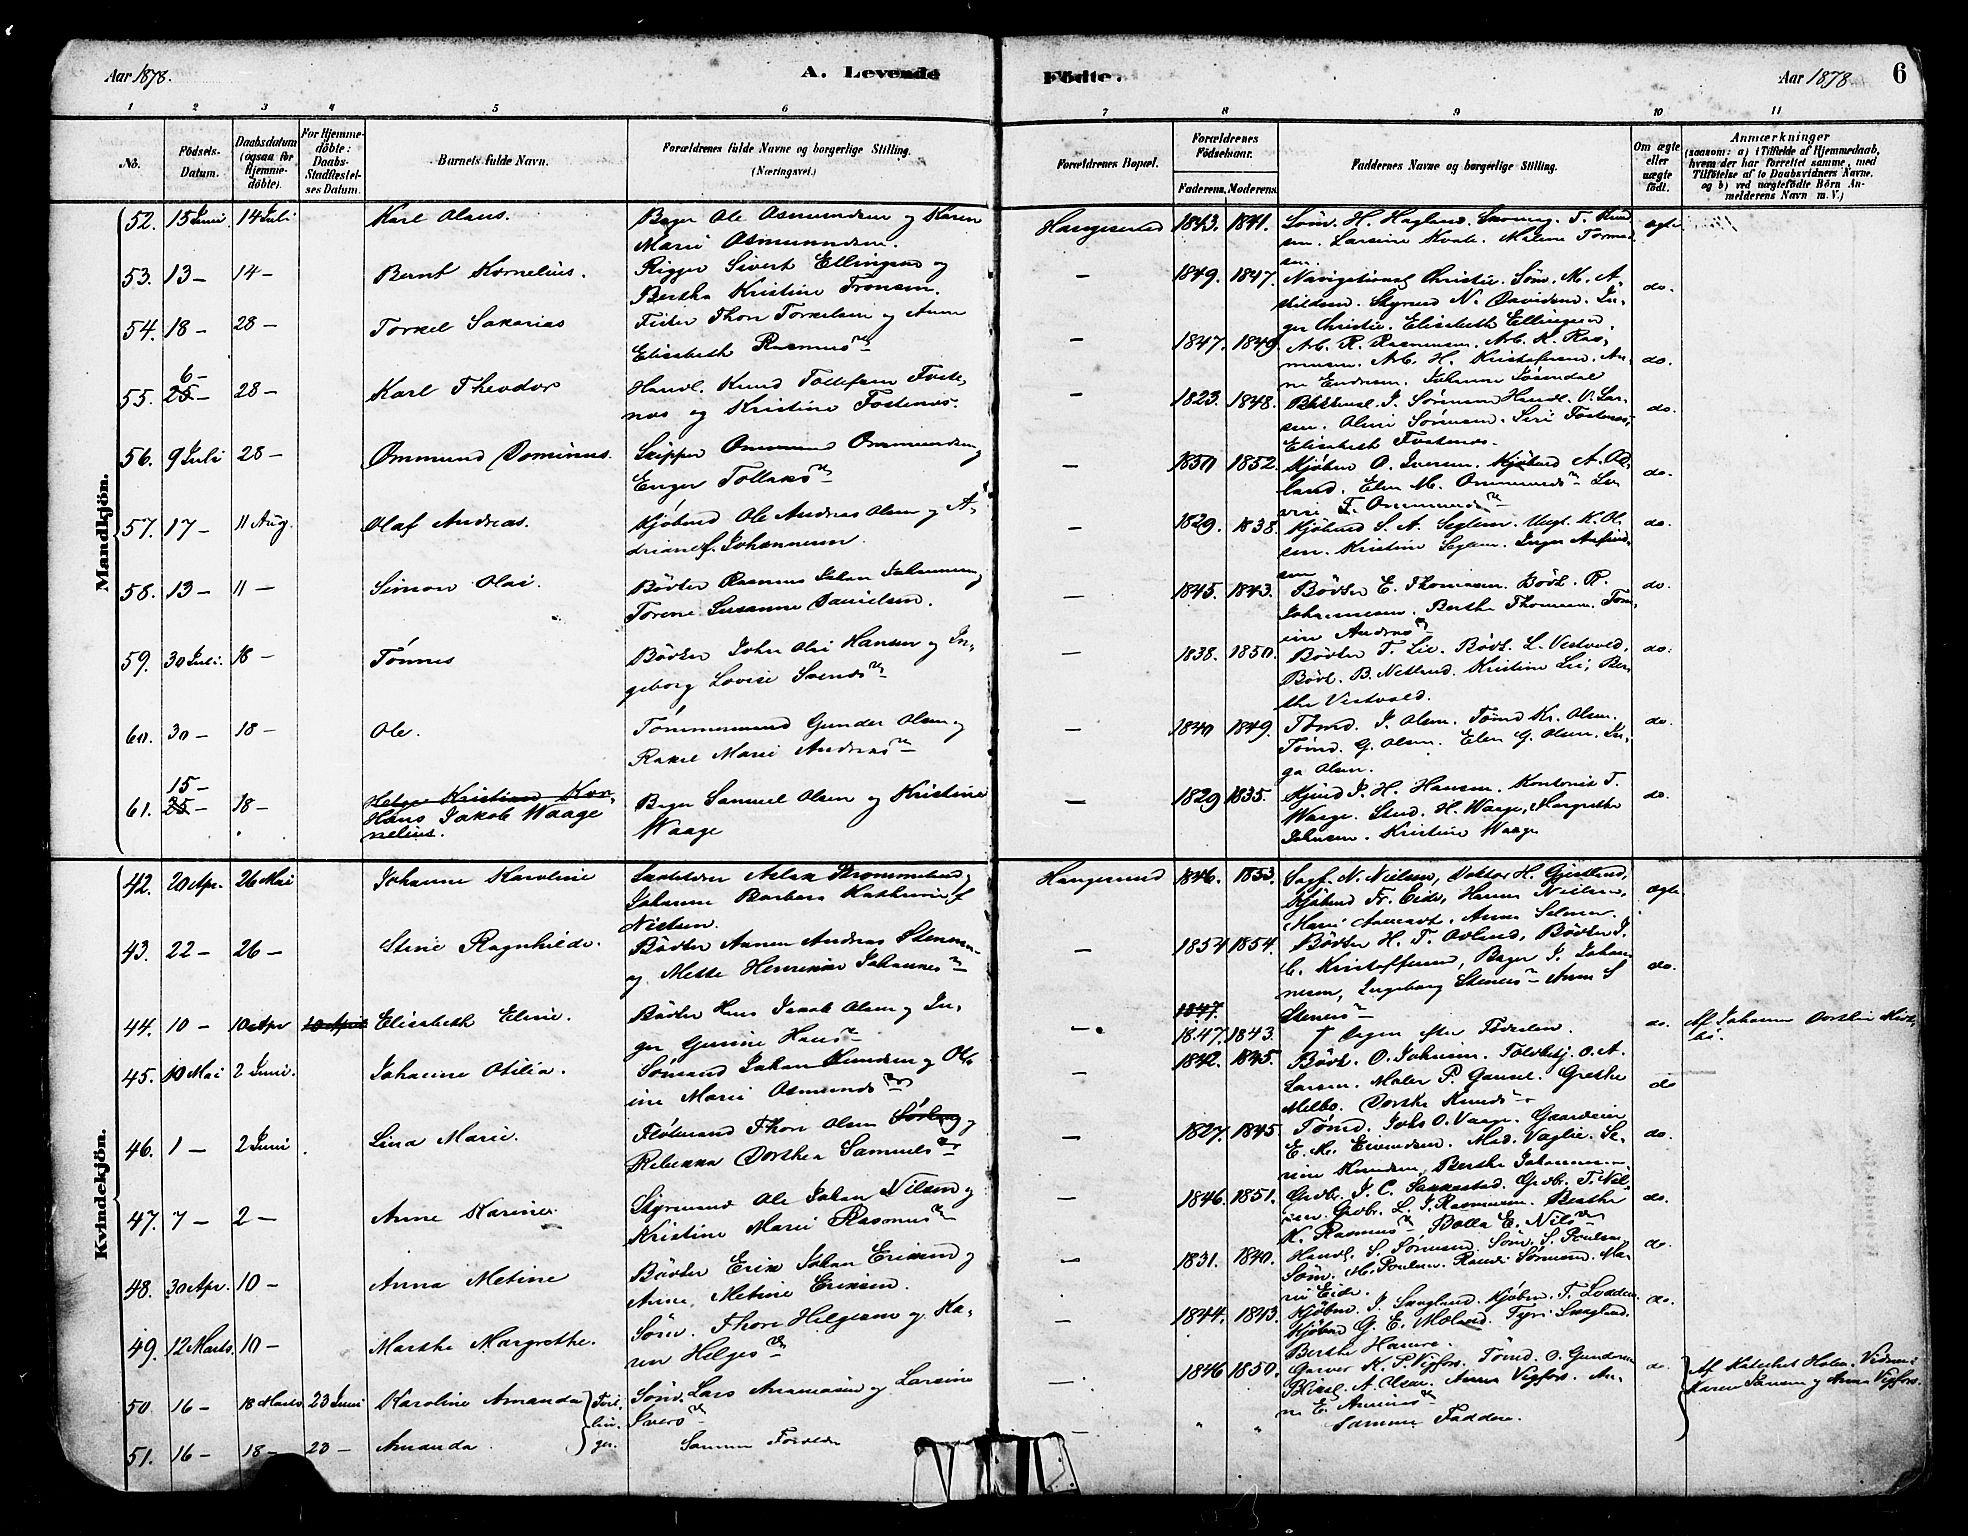 Aar 1878.
A. Levende
Födte.
Aar 1878
6
1 2 3 4 5 6 7 8 9 10 11
No.
Födsels-
Datum.
Daabsdatum
(ogsaa for
Hjemme-
döbte).
For Hjemme-
döbte:
Daabs-
Stadfæstel-
ses Datum.
Barnets fulde Navn.
Forældrenes fulde Navne og borgerlige Stilling.
(Næringsvei.)
Forældrenes Bopæl.
Forældrenes
Födselsaar.
Faderens. Moderens.
Faddernes Navne og borgerlige Stilling.
Om ægte
eller
uægte
födt.
Anmærkninger
(saasom: a) i Tilfælde af Hjemmedaab,
hvem der har forrettet samme, med
Tilföielse af to Daabsvidners Navne,
og b) ved uægtefödte Börn An-
melderens Navn m. V.)
Mandkjön.
52. 15 Juni 14 Juli Karl Olaus. Bager Ole Osmundsen og Karen
Marie Osmundsen.
Haugesund 1843. 1841. Söm. H. Hagland. T. Knud-
sen. Larsine Kvale. Malene Tormod-
sen. ægte
53. 13 — 14 — Bernt Kornelius. Rigger Sivert Ellingsen og
Bertha Kristine Tronsen.
— 1849. 1847. Christie. Söm. M. A-
Styrmd N. Davidsen. In-
ger Christie. Elisabeth Ellingsen. do.
54. 18 — 28 — Torkel Sakarias Fisker Thor Torkelsen og Anne
Elisabeth Rasmusdn
— 1847. 1849. Arb. R. Rasmussen. Arb. K. Ras-
mussen. Arb. H. Kristofersen. An-
ne Endresen. Johanne do.
55. 26 — 28 — Karl Theodor Handl. Knud Tollefsen Foste-
næs og Kristine Fostenæs.
1823. 1848. J. Sörensen Handl. V. Lar-
sen. Oline Sörensen. Siri Fostenæs,
Elisabeth Fostenæs. do.
56. 9 Juli 28 — Ommund Dominus. Skipper Ommund Ommundsen og
Enger Tollaksdn
— 1850 1852. Kjöbm O. Iversen. Kjöbmd A. Od-
land. Elen M. Ommundsdn Lo-
vise T. Ommundsdn do.
57. 17 — 11 Aug. Olaf Andreas. Kjöbmd Ole Andreas Olsen og A-
driane f. Johannesen.
— 1829. 1838. Kjöbmd S. A. Seglem. Ungk. K. Ol-
sen. Kristine Seglem. Inger Anfind-
sen do.
58. 13 — 11 — Simon Olai. Bödker Rasmus Johan Johannesen og
Torene Susanne Danielsen.
— 1845. 1843. Bödker E. Thomasen. Bödk. R.
Johannesen. Berthe Thomasen. Tom-
ine Andreasdn do.
59. 30 Juli. 18 — Tönnes Bödker John Olai Hansen og In-
geborg Lovise Svendsdn
— 1838. 1850. Bödker T. Lie. Bödk. L. Vestvold,
Bödk. B. Netland. Kristine Lie, Ber-
the Vestvold. do.
60. 30 — 18 — Ole. Tömmermand Gunder Olsen og
Rakel Marie Andreasdn
— 1840 1849. Tömd. J. Olsen. Tömd Kr. Olsen.
Tömd. G. Olsen. Elen G. Olsen. In-
ga Olsen. do.
61. 15 — 25 — 18 — Helge Kristian Kor-
Hans Jakob Waage
nelius.
Bager Samuel Olsen og Kristine
Waage
— 1829 1835. J. H. Hansen. Kontorist T.
Waage. Stud. H. Waage, Margrethe
Johnsen. Kristine Waage do.
Kvindekjön.
42. 20 Apr. 26 Mai Johanne Karoline Aslak Krommelund og
Johanne Barbara Kathrine f
Nielsen.
Haugesund 1846. 1853. Sagf. N. Nielsen, Doktor H. Gjestland,
Kjöbmd Fr. Eide, Hanna Nielsen,
Marie Aanrodt. Anna Selmer. ægte
43. 22 — 26 — Stine Ragnhilde. Bödker Aanen Andreas Stennes
og Mette Henrikke Johannesdn
— 1854 1854. Bödker H. T. Ovlund, Bödker J.
C. Kristoffersen, Bager J. Johan-
nesen, Ingeborg Stenesdn Anne S
Stenesdn do.
44. 10 — 10 Apr 10 April Elisabeth Eline. Bödker Hans Jacob Olsen og In-
ger Gurine Hansdn
— 1847 1847. 1843. † Dagen efter Födselen. do. Af Johanne Dorthea
45. 10 Mai 2 Juni. Johanne Otilia. Sömand Johan Knudsen og Ol-
ine Marie Osmundsdn
— 1842. 1845. Bödk. O. Johnsen. Toldbetj. O. A.
Larsen. Maler P. Gausel. Grethe
Melbo. Dorthe Knudsdn do
46. 1 — 2 Juni Lina Marie. Flötmand Thore Olsen og
Rebekka Dorthea Samuelsdn
— 1827. 1845. Tömd. Johs O. Vaage. Gaardeier
E. M. Eivindsen. Mad. Vaglie. Se-
rine Knudsen, Berthe Johannes. do.
47. 7 — 2 — Anne Karine. Styrmand Ole Johan Nilsen og
Kristine Marie Rasmusdn
— 1846. 1851. Grdbr. J. C. Sakkestad. Grdbr. T. Nil-
sen. Grdbr. L. J. Rasmussen. Berthe
K. Rasmusdn Bolla E. Nilsdn do.
48. 30 Apr. 10 — Anna Metine Bödker Erik Johan Eriksen og
Anne Metine Eriksen.
— 1831. 1840. Handl. S. Sörensen. Söm. S. Poulsen,
Söm. M. Poulsen. Randi Sörensen. Ma-
rie Eide. do.
49. 12 Marts. 10 — Marthe Margrethe. Söm. Thore Helgesen og Ka-
ren Helgesdn
— 1844. 1843. Kjöbm. J. Skagland. Kjöbm. T. Lodden.
Kjöbmd G. E. Moland. Tyri Skagland.
Berthe Hamre. do.
50. 16 — 18 Marts 23 Juni Karoline Amanda Söm. Lars Aanensen og Larsine
Iversdn
— 1846 1850. Garver K. P. Vigfors. Tömd. O. Gundersen
A. Olsen. Anna Vigfors. An-
ne E. Aanensdn do. Af Holm. Vidner:
Karen Larsen og Anna Vigfors.
Tvil-
lin-
ger.
51. 16 — 18 — 23 — Amanda. Samme Forældre
— „ „ Samme Faddere.